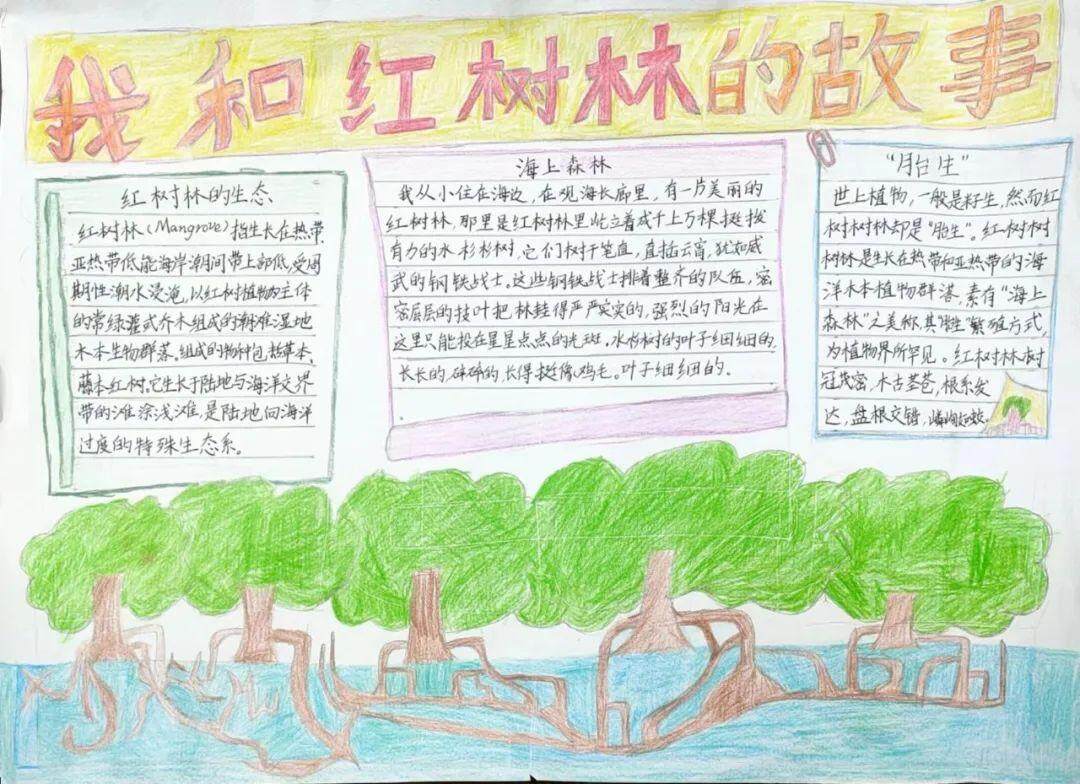 我和红树林的故事
红树林的生态
红树林(Mangrove)指生长在热带
亚热带低能海岸潮间带上部低,受周
期性潮水浸淹,以红树植物为主体
的常绿灌或乔木组成的潮滩湿地
木本生物群落。组成的物种包括草本、
藤本红树。它生长于陆地与海洋交界
带的滩涂浅滩,是陆地向海洋
过度的特殊生态系。
海上森林
我从小住在海边,在观海长廊里,有一片美丽的
红树林,那里是红树林里屹立着成千上万棵挺拔
有力的水杉杉树,它们树干笔直,直插云宵,犹如威
武的钢铁战士,这些钢铁战士排着整齐的队伍,密
密层层的技叶把林挂得严严实实的,强烈的阳光在
这里只能投在星星点点的光斑,水杉树的叶子细细的,
长长的,碎碎的,长得挺像鸡毛。叶子细细的。
“胎生”
世上植物,一般是籽生,然而红
树树林却是“胎生”。红树树
树林是生长在热带和亚热带的海
洋木本植物群落,素有“海上
森林”之美称,其繁殖方式,
为植物界所罕见。红树林树
冠茂密,木古茎苍,根系发
达,盘根交错,